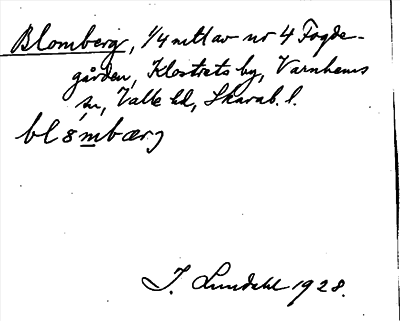 Blomberg, 1/4 mtl av nr 4 Fogde-
gården, Klostrets by, Varnhems
sn, Valle hd, Skarab. l.
bl8mbærj
I. Lundahl 1928.